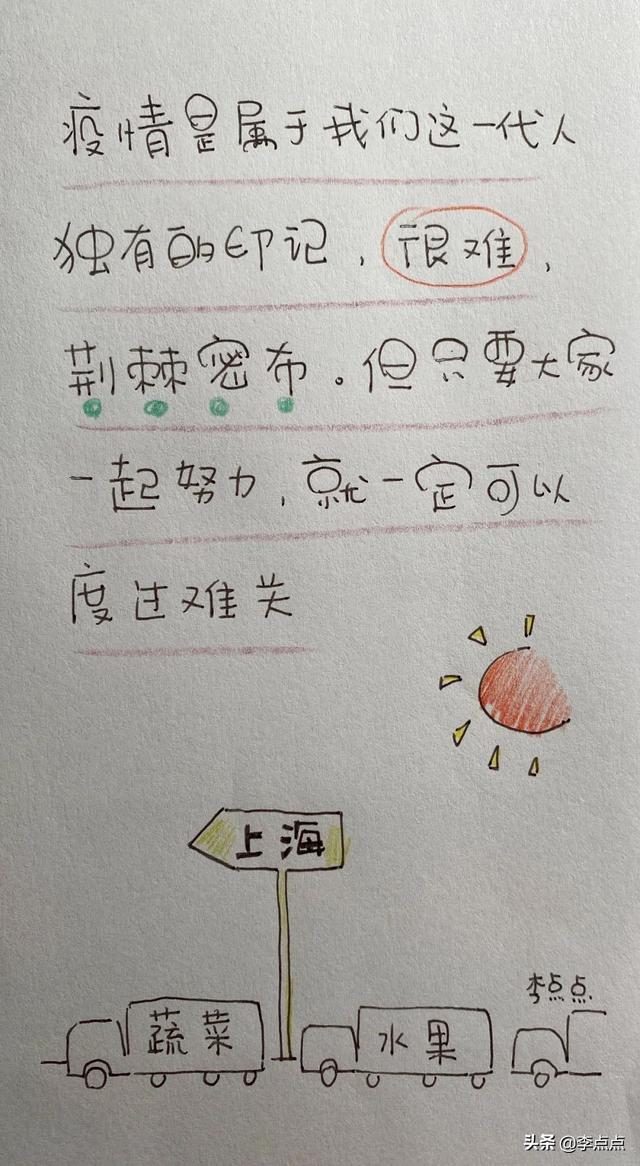 疫情是属于我们这一代人
独有的印记，很难，
荆棘密布。但只要大家
一起努力，就一定可以
度过难关
上海
李点点
蔬菜
水果
头条 @李点点